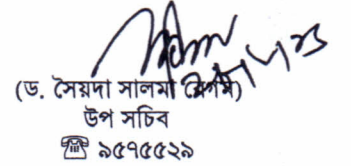 (ড. সৈয়দা সালমা বেগম)
উপ সচিব
☎ ৯৫৭৫৫২৯